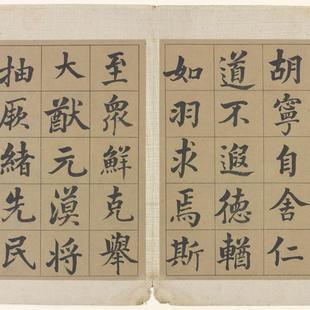 胡寧自舍仁
道不遐德輶
如羽求焉斯
至衆鮮克舉
大猷元漠将
抽厥緒先民